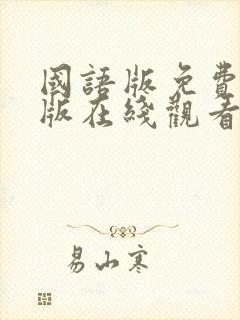 國語版免費
版在綫觀看
易山寒